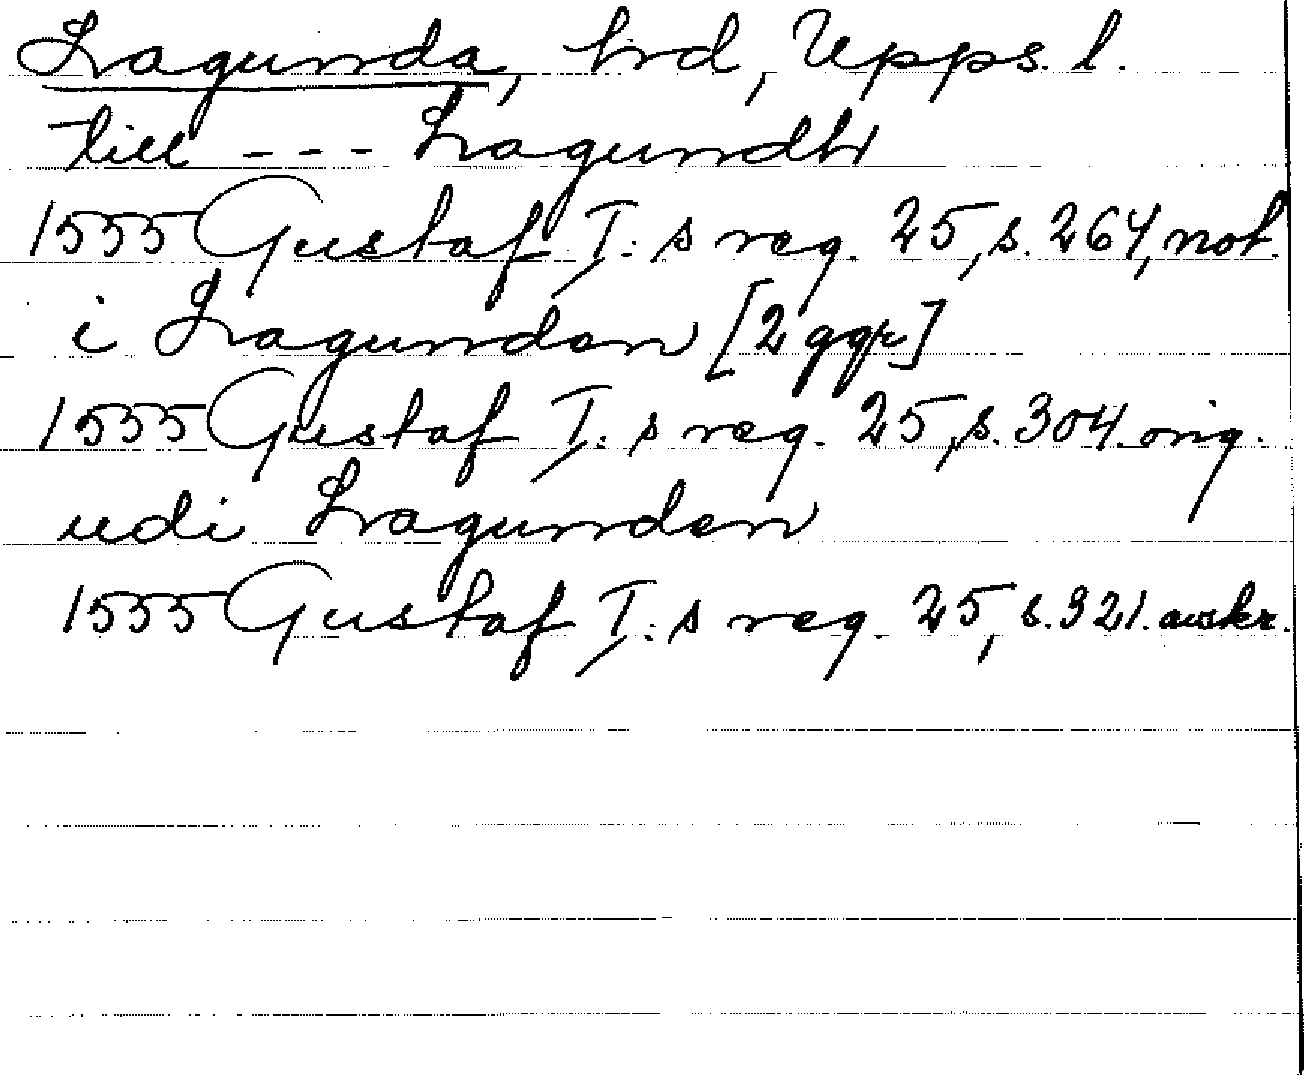 Lagunda, hrd, Upps. l.
till --- Lagundh
1555 Gustaf I:s reg. 25, s. 264, not.
i Lagundan [2 ggr]
1555 Gustaf I:s reg. 25, s. 304. orig.
udi Lagunden
1555 Gustaf I:s reg. 25, s. 321. avskr.